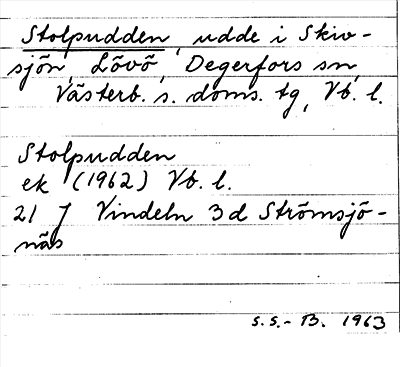 Stolpudden, udde i Skiv-
sjön, Lövö, Degerfors sn,
Västerb. s. doms. tg, Vb. l.
Stolpudden
ek (1962) Vb. l.
21 J Vindeln 3d Strömsjö-
näs
S.S.-B. 1963